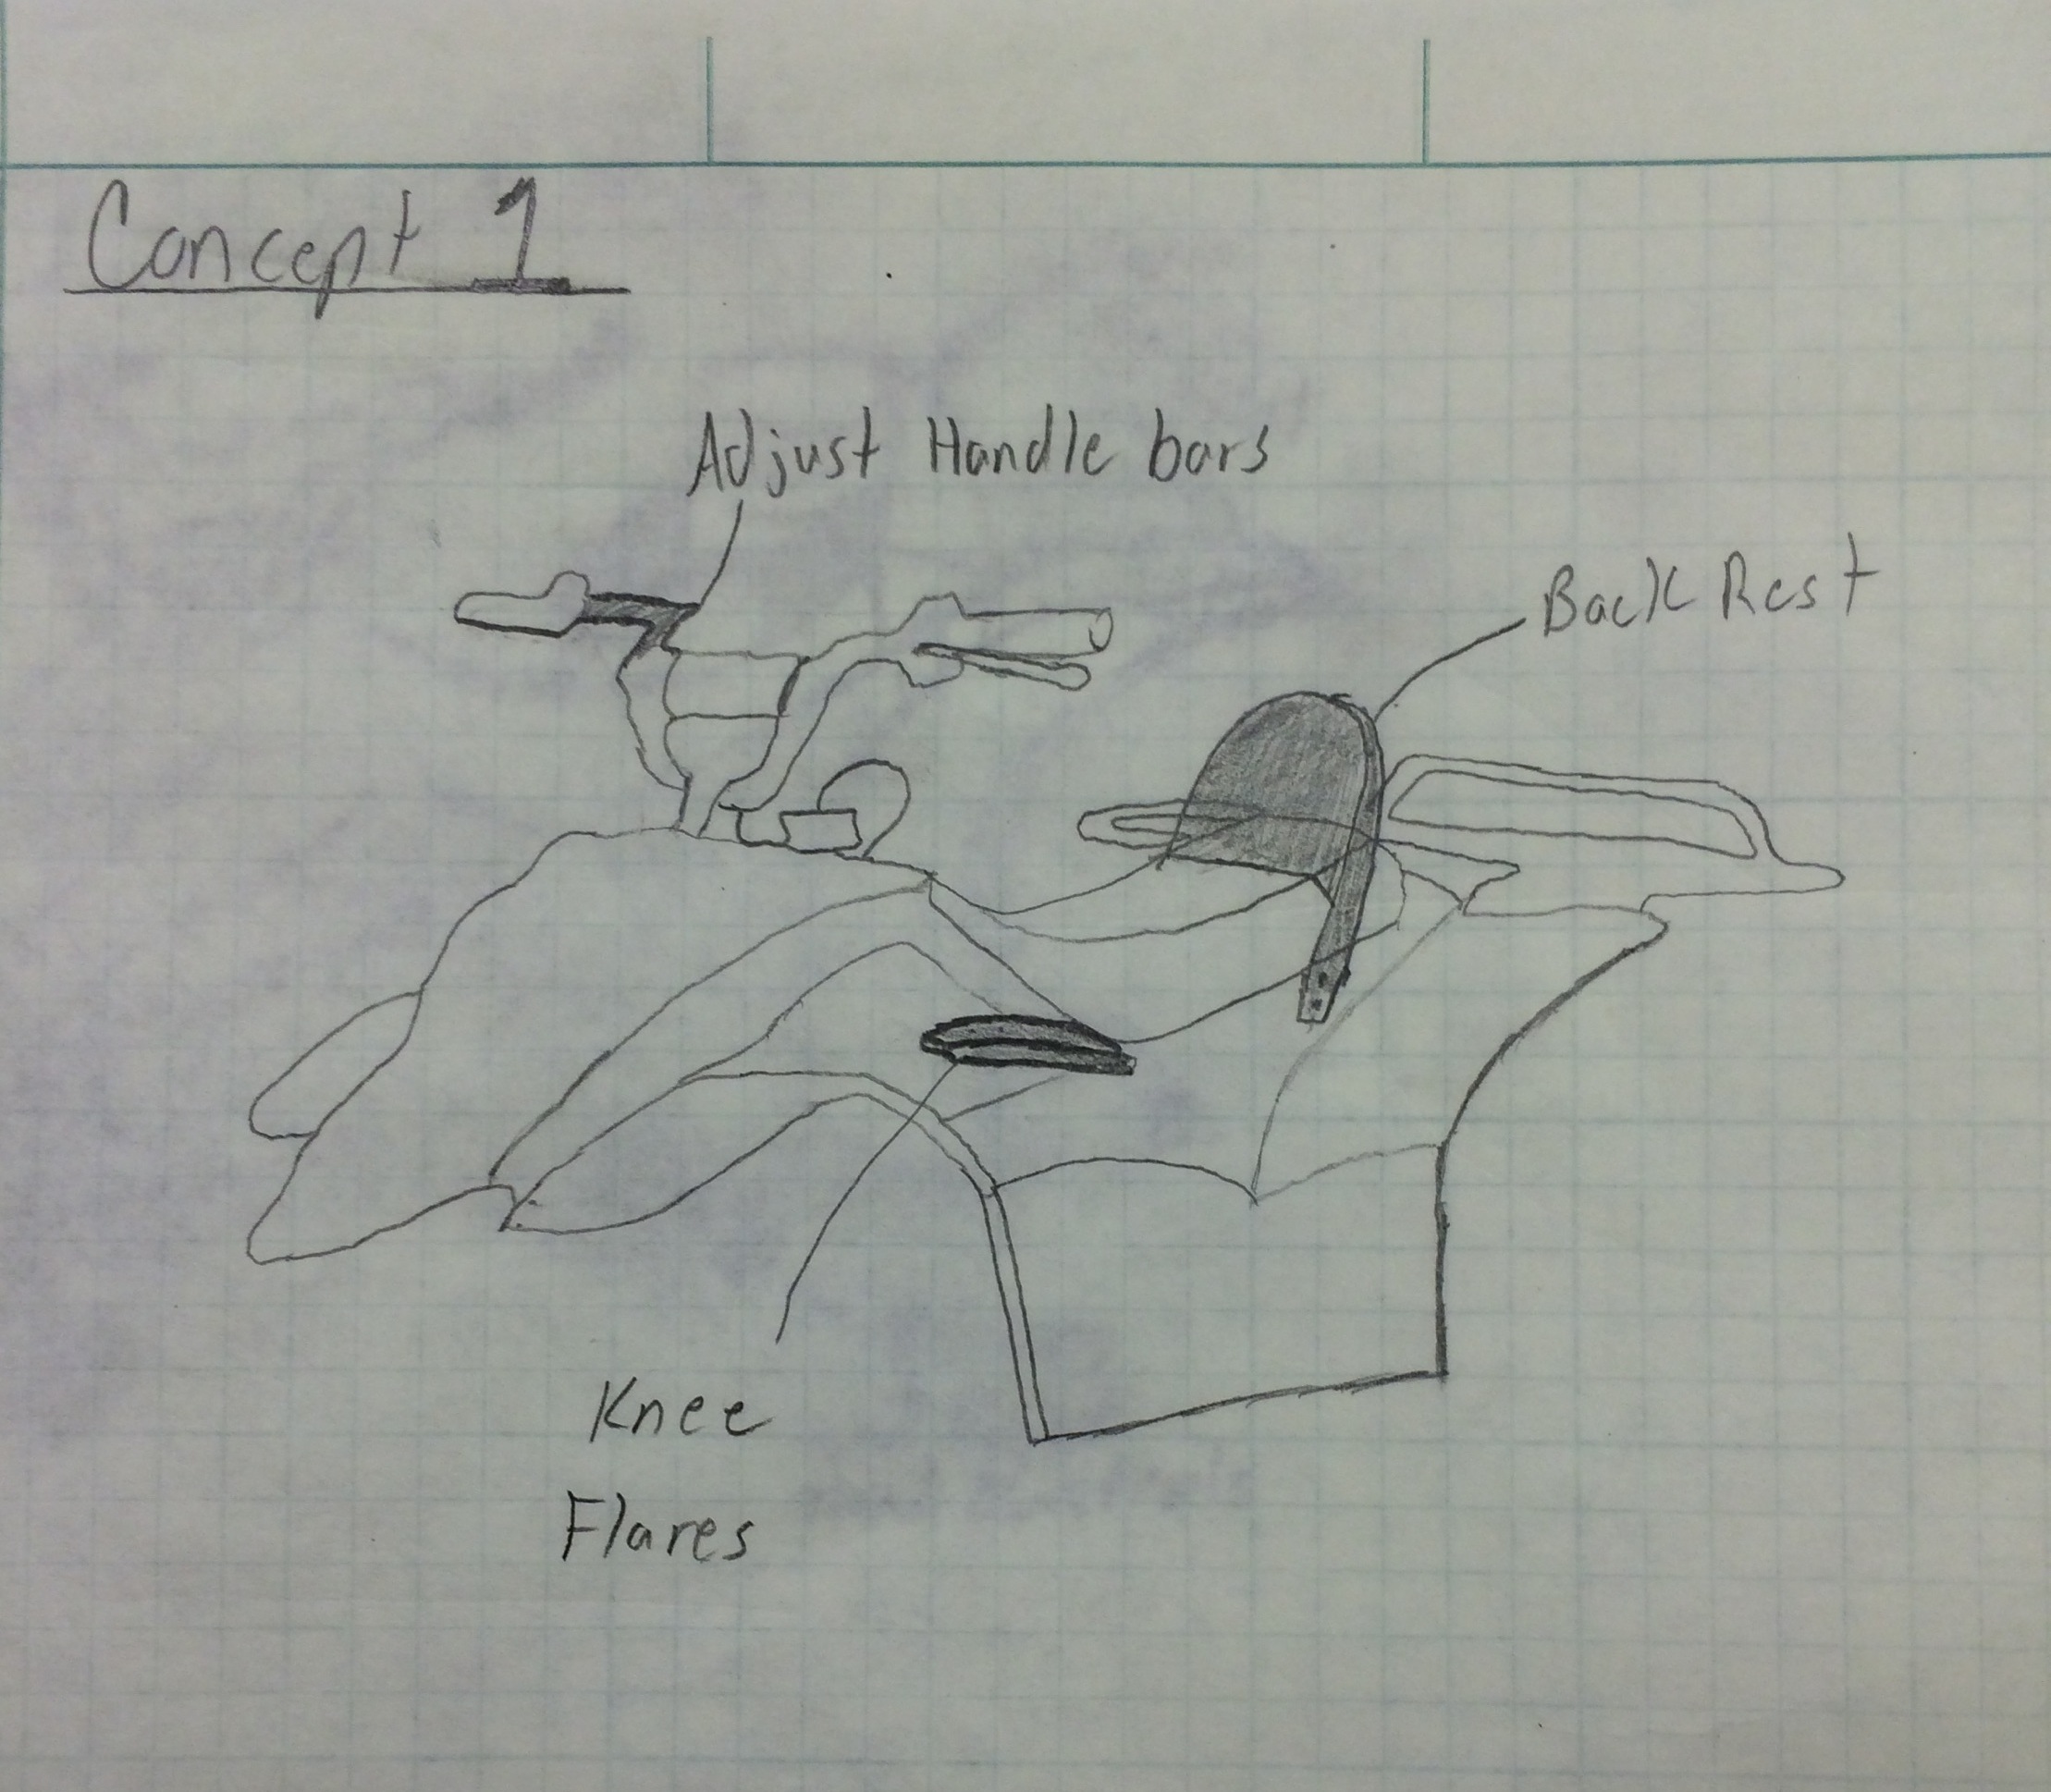 Concept 1
Adjust Handle bars
Back Rest
Knee
Flares